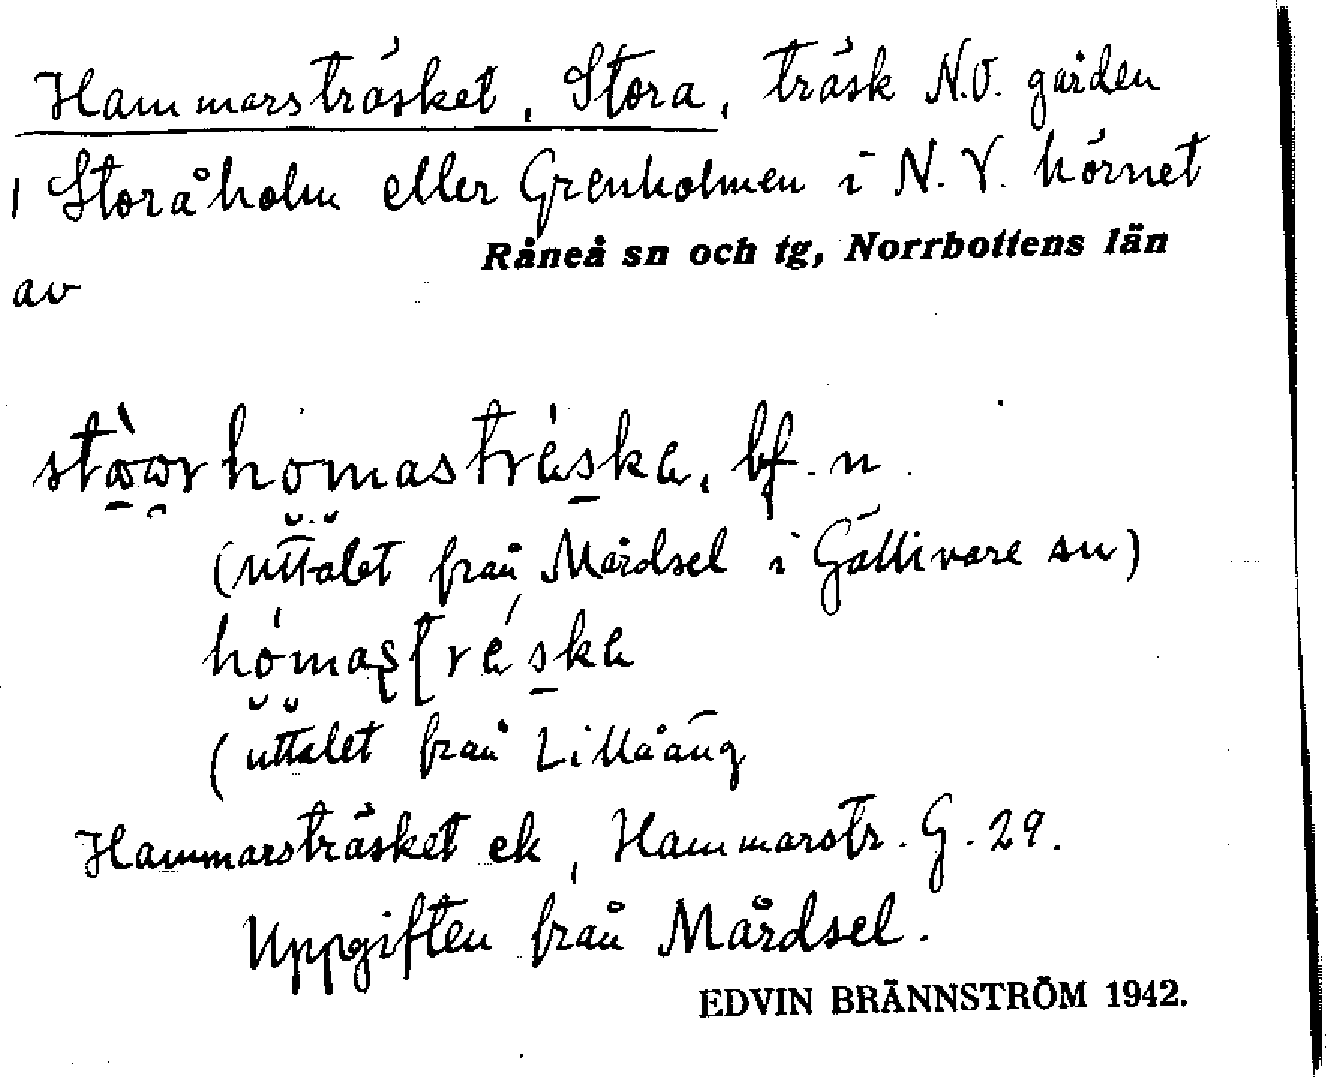 Hammarsträsket, Stora, träsk N.O. gården
1 Storåholm eller Grenholmen i N.V. hörnet
Råneå sn och tg, Norrbottens län
av
bf. n.
(uttalet från Mårdsel i Gällivare sn)
(uttalet från Lillåäng
Hammarsträsket ek, Hammarstr. G. 29.
Uppgiften från Mårdsel.
EDVIN BRÄNNSTRÖM 1942.